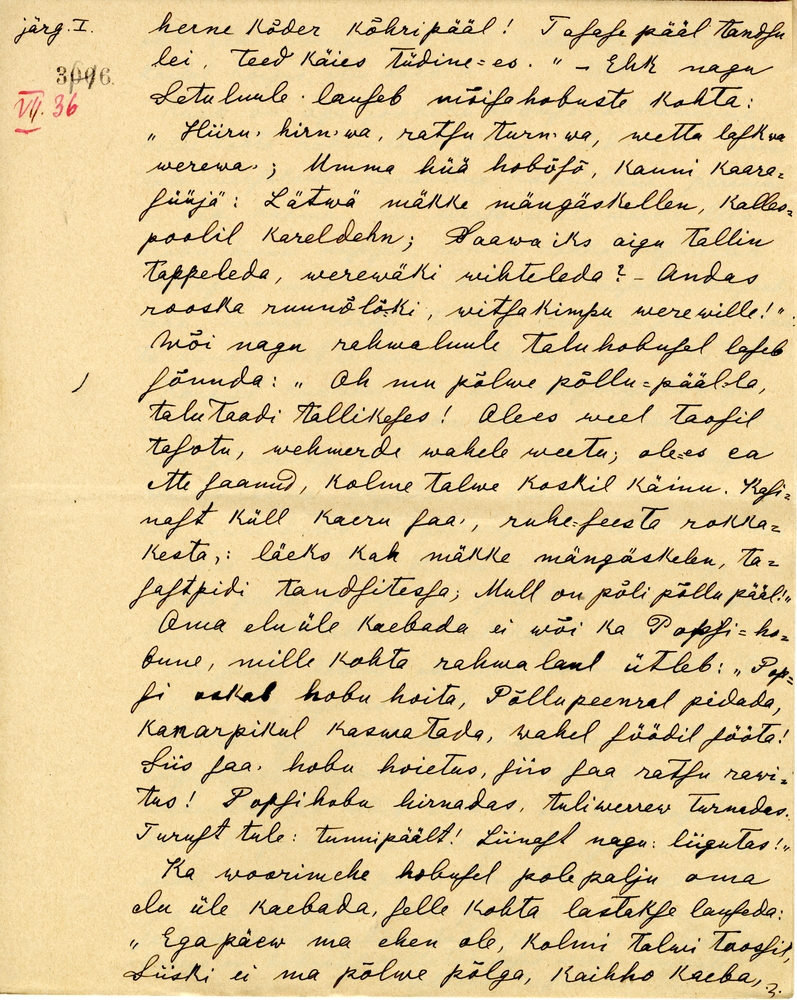 järg. I.
3006
VII. 36
herne köder köhripääl! Tasase pääl tandsu
lei, teed käies tüdine=es." – Ehk nagu
Setu luule lauseb mõisahobuste kohta:
„Hiiru, hirn·wa, ratsu turn·wa, wetta laskwa
werewa; Umma hüä hobõsõ, kauni kaara=
süüjä: Lätwä mäkke mängäskellen, kalles=
poolil kareldehn; Saawa iks aigu tallin
tappeleda, werewäki wihteleda? – Andas
rooska ruunõlõ·ki, witsakimpu werewille!"
Wõi nagu rahwaluule taluhobusel laseb
sõnuda: „Oh mu põlwe põllu=pääl·la,
talu taadi tallikeses! Olees weel taosil
tasotu, wehmerde wahele weetu; ole=es ea
ette saanud, kolme talwe koskil käinu. Kasi=
nast küll kaeru saa, ruhe=seesta rokka=
kesta,: läeks kah mäkke mängäskelen, ta=
sastpidi tandsitessa; Mull on põli põllu pääl!"
Oma elu üle kaebada ei wõi ka Popsi=ho=
bune, mille kohta rahwalaul ütleb: „Pop=
si oskab hobu hoita, Põllupeenral pidada,
kanarpikul kaswatada, wahel söödil sööta!
Siis saa hobu hoietus, siis saa ratsu rawi=
tus! Popsihobu hirnadas, tuliwerrew turnades.
Turust tule: tunnipäält! Liinast nagu: liigutas!"
Ka woorimehe hobusel pole palju oma
elu üle kaebada, selle kohta lastakse lauseda:
„Ega päew ma ehen ole, kolmi talwi taossil,
Siiski ei ma põlwe põlga, kaihho kaeba,